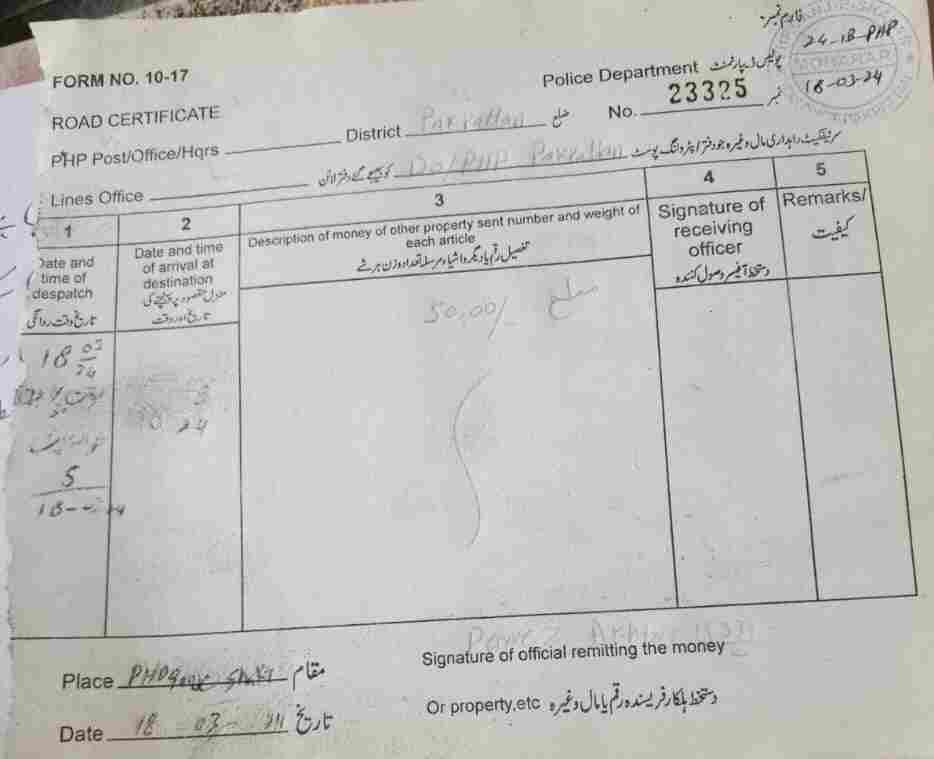 فارم نمبر:
24-1B-PHP
MOHARRAR
18-03-24
FORM NO. 10-17
Police Department پولیس ڈیپارٹمنٹ
ROAD CERTIFICATE
No. 23325 نمبر
PHP Post/Office/Hqrs District Pakpattan ضلع
Lines Office Do/PHP Pakpattan سرٹیفکیٹ راہداری مال وغیرہ جو دفتر/پٹرولنگ پوسٹ کو بھیجے گئے دفتر لائن
1 2 3 4 5
Date and time of despatch
تاریخ و وقت روانگی
Date and time of arrival at destination
منزل مقصود پر پہنچنے کی تاریخ اور وقت
Description of money of other property sent number and weight of each article
تفصیل رقم یا دیگر اشیاء مرسلہ تعداد و وزن ہر شے
Signature of receiving officer
دستخط آفیسر وصول کنندہ
Remarks/
کیفیت
18 03/24
50,00/-
24
5
18-
Signature of official remitting the money
Place مقام
Or property,etc دستخط اہلکار فریسندہ رقم یا مال وغیرہ
Date 18 03 تاریخ